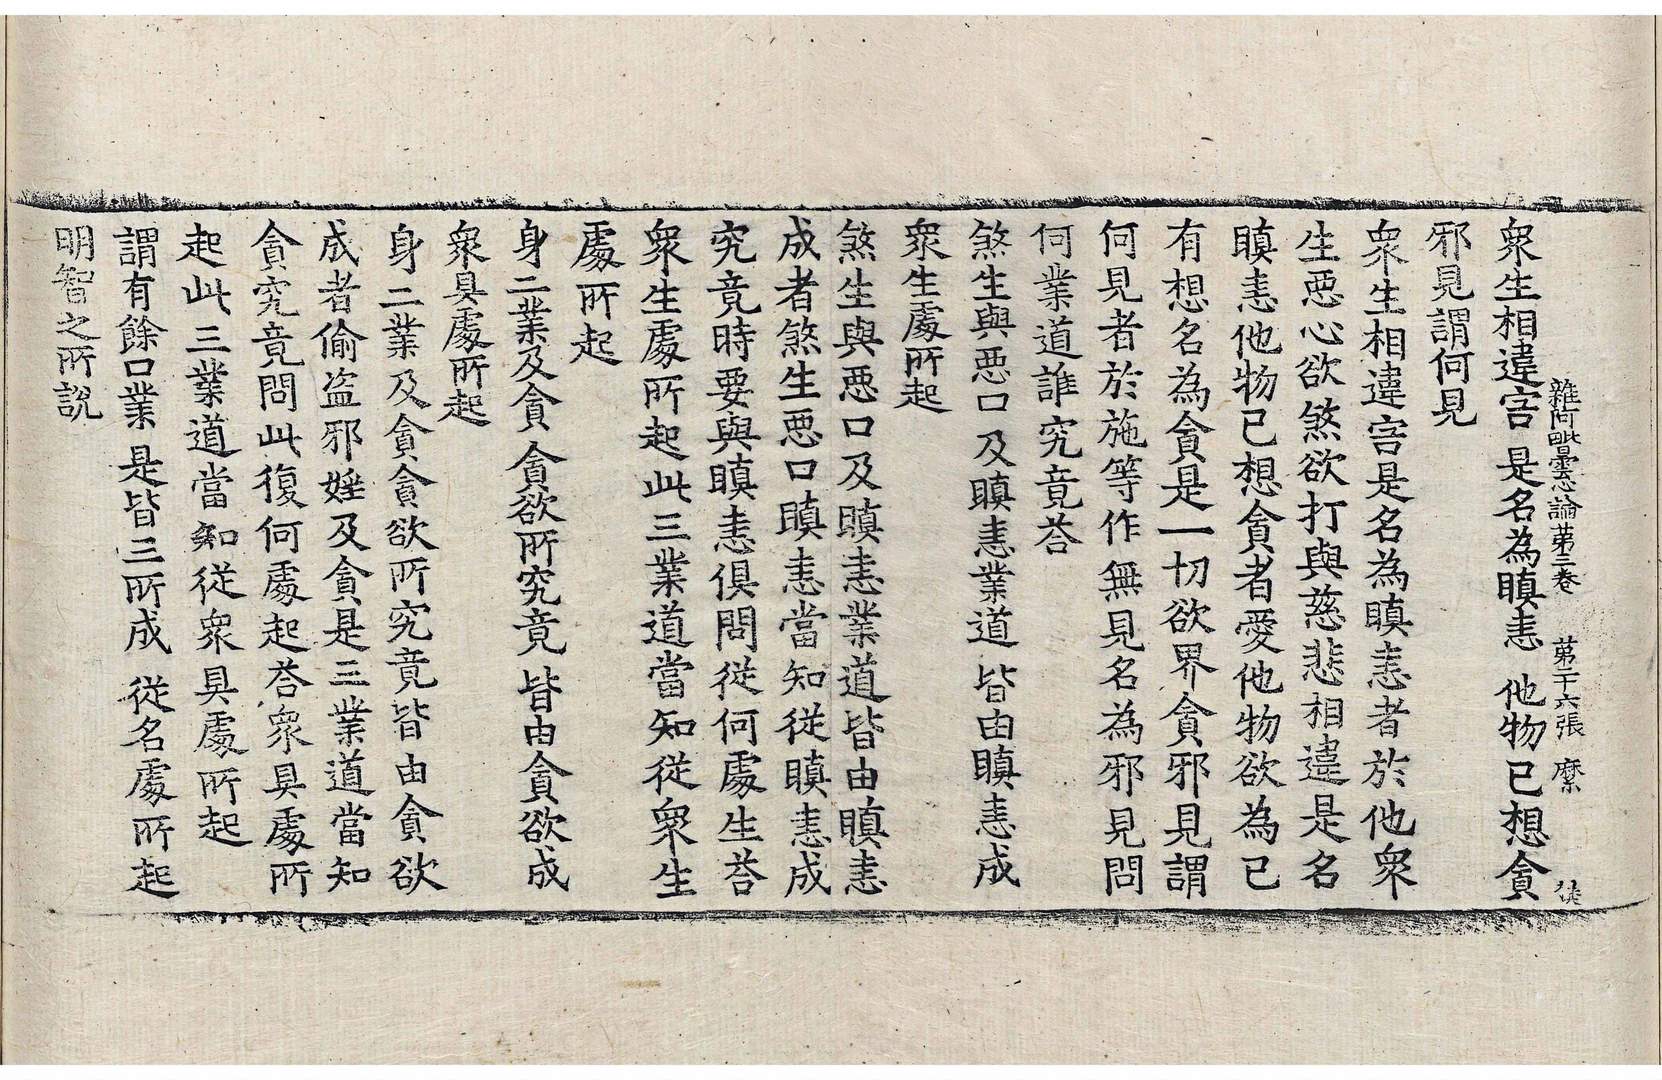 雜阿毗曇心論第三卷 第二十六張 縻
衆生相違害 是名為瞋恚 他物已想貪
邪見謂何見
衆生相違害是名為瞋恚者於他衆
生惡心欲煞欲打與慈悲相違是名
瞋恚他物已想貪者愛他物欲為已
有想名為貪是一切欲界貪邪見謂
何見者於施等作無見名為邪見問
何業道誰究竟荅
煞生與惡口 及瞋恚業道 皆由瞋恚成
衆生處所起
煞生與惡口及瞋恚業道皆由瞋恚
成者煞生惡口瞋恚當知從瞋恚成
究竟時要與瞋恚俱問從何處生荅
衆生處所起此三業道當知從衆生
處所起
身二業及貪 貪欲所究竟 皆由貪欲成
衆具處所起
身二業及貪貪欲所究竟皆由貪欲
成者偷盗邪婬及貪是三業道當知
貪究竟問此復何處起荅衆具處所
起此三業道當知從衆具處所起
謂有餘口業 是皆三所成 從名處所起
明智之所說